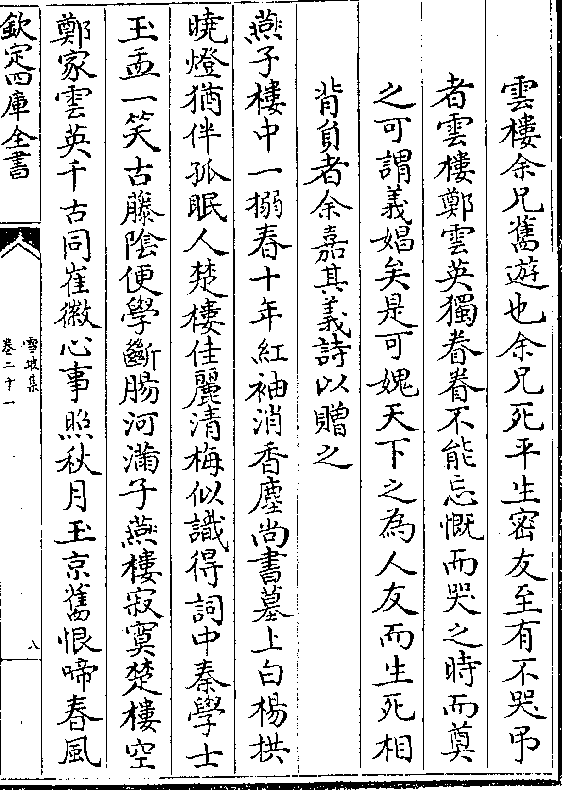 雲樓余兄舊遊也余兄死平生密友至有不哭弔
者雲樓鄭雲英獨眷眷不能忘慨而哭之時而奠
之可謂義娼矣是可媿天下之為人友而生死相
背負者余嘉其義詩以贈之
燕子樓中一搦春十年紅袖消香塵尚書墓上白楊拱
曉燈猶伴孤眠人楚樓佳麗清梅似識得詞中秦學士
玉盃一笑古藤陰便學斷腸河滿子燕樓寂寞楚樓空
鄭家雲英千古同崔徽心事照秋月玉京舊恨啼春風
欽定四庫全書
雪坡集
卷二十一
八